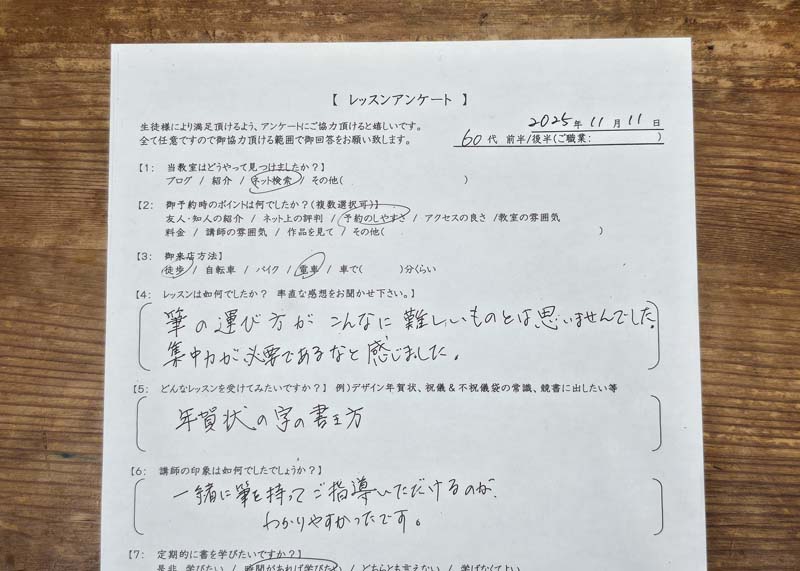 【 レッスンアンケート 】
生徒様により満足頂けるよう、アンケートにご協力頂けると嬉しいです。
全て任意ですので御協力頂ける範囲で御回答をお願い致します。
2025年 11月 11日
60代 前半/後半(ご職業: )
【1: 当教室はどうやって見つけましたか?】
ブログ / 紹介 / ネット検索 / その他( )
【2: 御予約時のポイントは何でしたか?(複数選択可)】
友人・知人の紹介 / ネット上の評判 / 予約のしやすさ / アクセスの良さ /教室の雰囲気
料金 / 講師の雰囲気 / 作品を見て / その他( )
【3: 御来店方法】
徒歩 / 自転車 / バイク / 電車 / 車で( )分くらい
【4: レッスンは如何でしたか? 率直な感想をお聞かせ下さい。】
筆の運び方が こんなに難しいものとは思いませんでした。
集中力が必要であるなと感じました。
【5: どんなレッスンを受けてみたいですか?】 例)デザイン年賀状、祝儀&不祝儀袋の常識、競書に出したい等
年賀状の字の書き方
【6: 講師の印象は如何でしたでしょうか?】
一緒に筆を持ってご指導いただけるのが、
わかりやすかったです。
【7: 定期的に書を学びたいですか?】
是非 学びたい / 時間があれば学びたい / どちらとも言えない / 学ばなくてよい